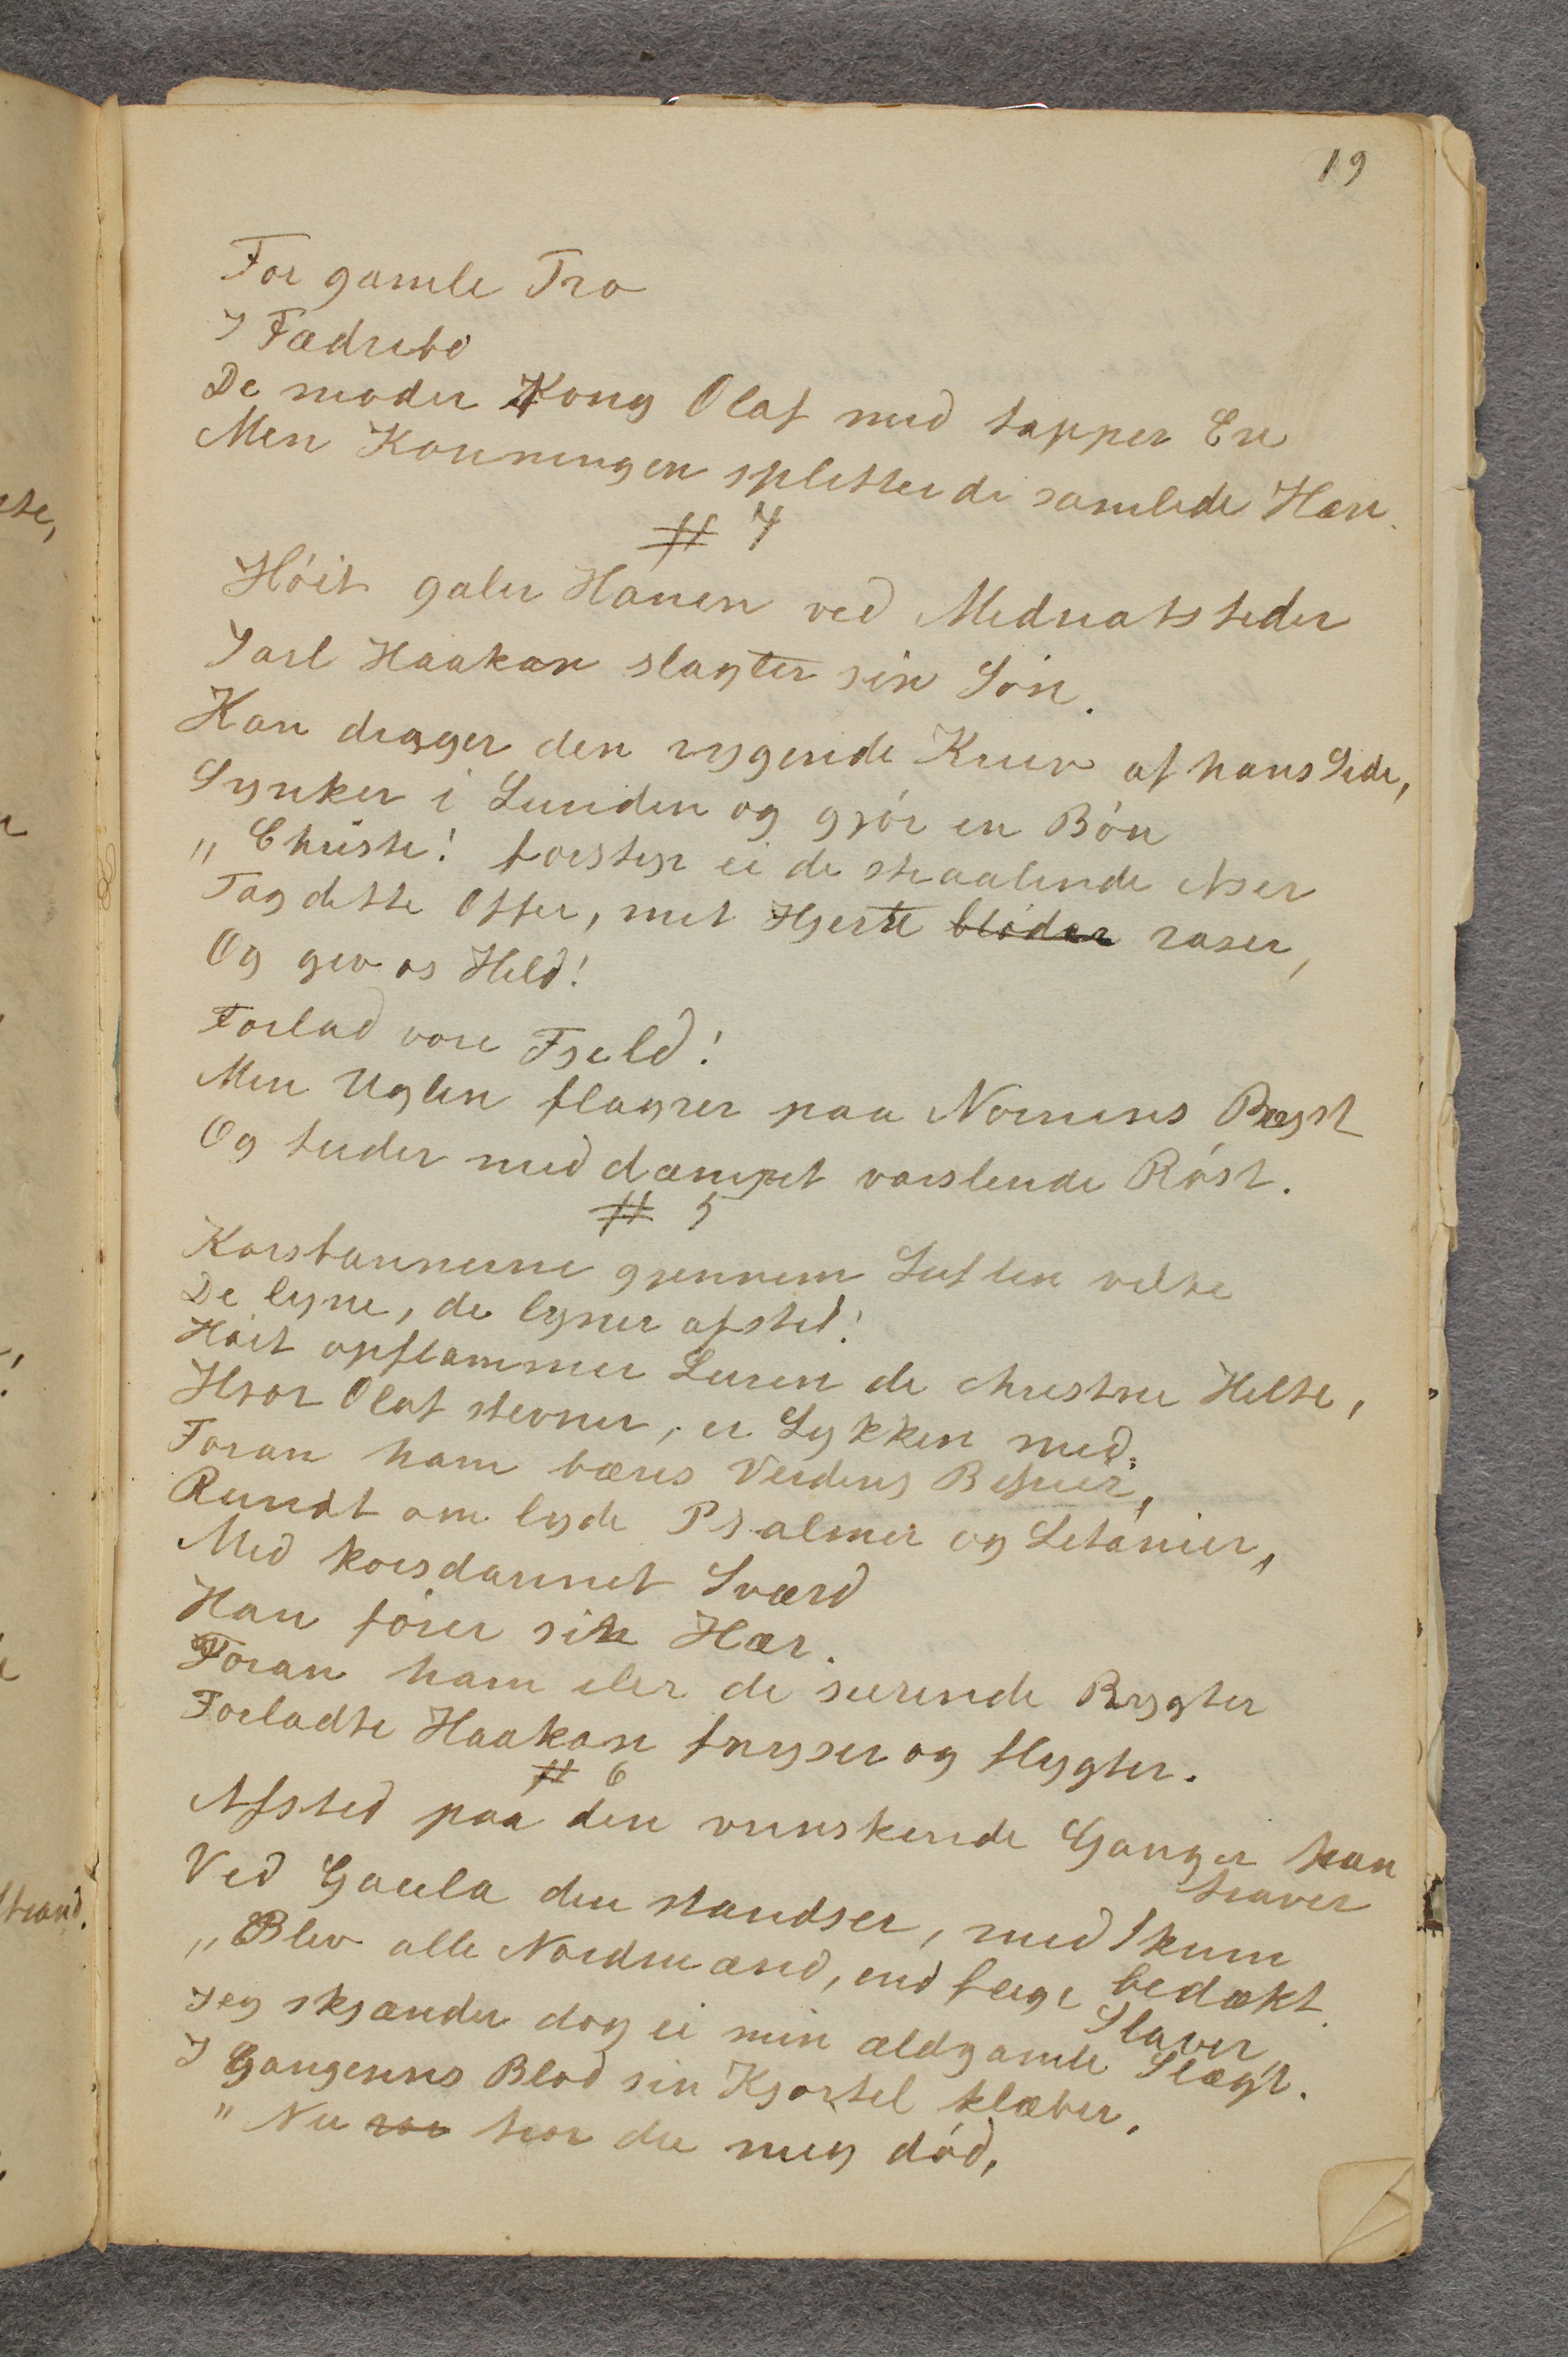 19
For gamle Tro
I Fædrebo
De møder Kong Olaf med tapper Ere
Men Konningen spletter de samlede Hære.
# 4
Höit galer Hanen ved Midnatstider
Jarl Haakon slagter sin Sön.
Han drager den rygende Kniv af hans Side,
Synker i Lunden og gjör en Bön
„Christe! forstyr ei de straalende Aser
Tag dette Offer, mit Hjerte blöder raser,
Og giv os Held!
Forlad vore Fjeld!
Men Uglen flagrer paa Nornens Bryst
Og tuder med dæmpet varslende Röst.
# 5
Korsbannerne gjennem Luften vælte
De lyne, de lyner afsted!
Höit opflammer Luren de christne Helte,
Hvor Olaf stevner, er Lykken med.
Foran ham bæres Verdens Befrier,
Rundt om lyde Psalmer og Letanier,
Med korsdannet Sværd
Han förer sin Hær.
Foran ham iler de susende Rygter
Forladte Haakon fnyser og flygter.
# 6
Afsted paa den vrinskende Ganger han
traver
Ved Gaula den standser, med Skum
bedækt.
„Blev alle Nordmænd, end feige
Slaver
Jeg skjænder dog ei min ældgamle Slægt.
I Gangerens Blod sin Kjortel klæber,
"Nu ror tror du mig död,
ste,
strand.